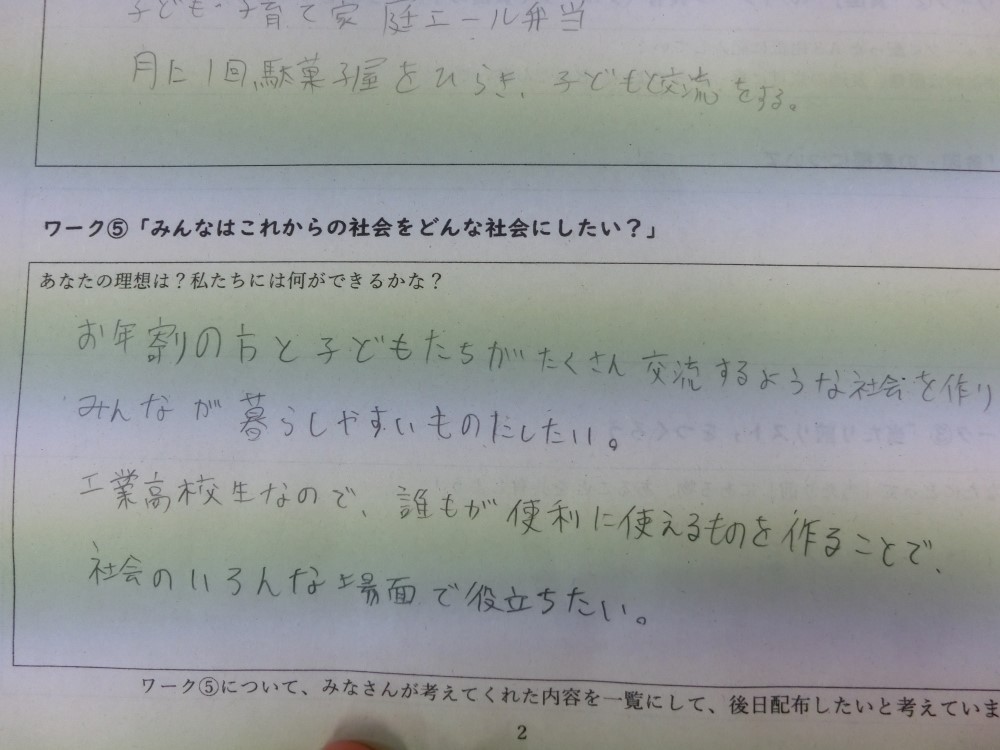 子ども・子育て家庭エール弁当
月に1回、駄菓子屋をひらき、子どもと交流をする。
ワーク⑤「みんなはこれからの社会をどんな社会にしたい？」
あなたの理想は？私たちには何ができるかな？
お年寄りの方と子どもたちがたくさん交流するような社会を作り
みんなが暮らしやすいものにしたい。
工業高校生なので、誰もが便利に使えるものを作ることで、
社会のいろんな場面で役立ちたい。
ワーク⑤について、みなさんが考えてくれた内容を一覧にして、後日配布したいと考えていま
2